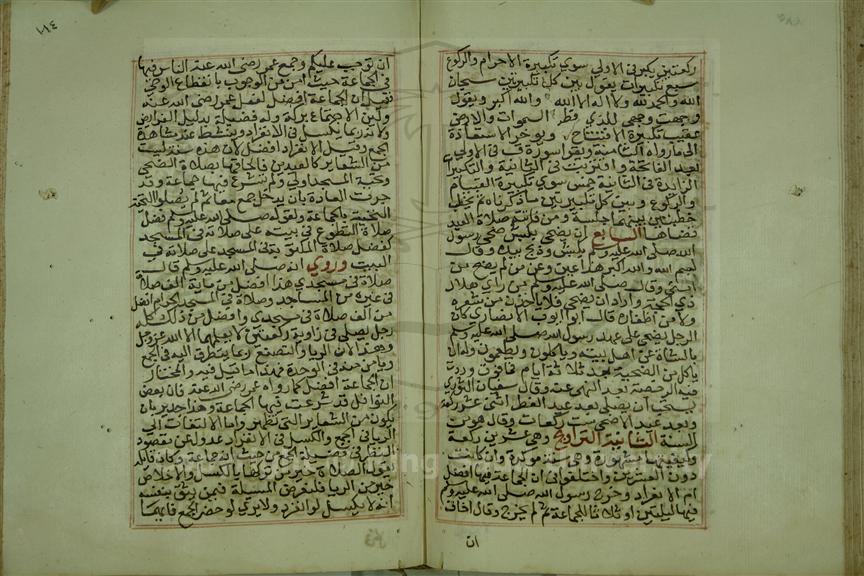 ركعتين يكبر في الاولي سوي تكبيرة الاحرام والركوع
سبع تكبيرات يقول بين كل تكبيرتين سبحان
الله والحمد لله ولا اله الا الله والله اكبر ويقول
وجهت وجهي للذي فطر السموات والارض
عقيب تكبيرة الافتتاح ويوخر الاستعاذة
الي ما وراء الثامنة ويقرا سورة ق في الاولي
بعد الفاتحة واقتربت في الثانية والتكبيرات
الزايدة في الثانية خمس سوي تكبيرة القيام
والركوع وبين كل تكبيرتين ما ذكرناه ثم يخطب
خطبتين بينهما جلسة ومن فاتته صلاة العيد
قضاها السابع ان يضحي بكبش ضحي رسول
الله صلي الله عليه وسلم بكبش وذبح بيده وقال
بسم الله والله اكبر هذا عني وعن من لم يضح من
امتي وقال صلي الله عليه وسلم من راي هلال
ذي الحجة واراد ان يضحي فلا ياخذن من شعره
ولا من اظفاره قال ابو ايوب الانصاري كان
الرجل يضحي علي عهد رسول الله صلي الله عليه وسلم
بالشاة عن اهل بيته وياكلون ويطعمون وله ان
ياكل من الضحية بعد ثلاثة ايام فما فوق وردت
فيه الرخصة بعد النهي عنه وقال سفيان الثوري
يستحب ان يصلي بعد عيد الفطر اثني عشر ركعة
وبعد عيد الاضحي ست ركعات وقال هو من
السنة الثانية التراويح وهي عشرين ركعة
وكيفيتها مشهورة وهي سنة موكدة وان كانت
دون العيدين واختلفوا في ان الجماعة فيها افضل
ام الانفراد وخرج رسول الله صلي الله عليه وسلم
فيها ليلتين او ثلاثا للجماعة ثم لم يخرج وقال اخاف
ان
١١٤
ان توجب عليكم وجمع عمر رضي الله عنه الناس فيها
في الجماعة حيث امن من الوجوب بانقطاع الوحي
فقيل ان الجماعة افضل لفعل عمر رضي الله عنه
ولان الاجتماع بركة وله فضيلة بدليل الفرايض
ولانه ربما يكسل في الانفراد وينشط عند مشاهدة
الجمع وقيل الانفراد افضل لان هذه سنة ليست
من الشعاير كالعيدين فالحاقها بصلاة الضحي
وتحية المسجد اولي ولم تشرع فيها جماعة وقد
جرت العادة بان يدخل جمع معا ثم لم يصلوا التحية
بالجماعة ولقوله صلي الله عليه وسلم فضل
صلاة التطوع في بيته علي صلاته في المسجد
كفضل صلاة المكتوبة في المسجد علي صلاته في
البيت وروي انه صلي الله عليه وسلم قال
صلاة في مسجدي هذا افضل من ماية الف صلاة
في غيره من المساجد وصلاة في المسجد الحرام افضل
من الف صلاة في مسجدي وافضل من ذلك كله
رجل يصلي في زاوية ركعتين لا يعلمها الا الله عز وجل
وهذا لان الريا والتصنع ربما يتطرق اليه في الجمع
ويامن منه في الوحدة فهذا ما قيل فيه والمختار
ان الجماعة افضل كما رواه عمر رضي الله عنه فان بعض
النوافل قد شرعت فيها الجماعة وهذا جدير بان
يكون من الشعاير التي تظهر واما الالتفات الي
الريا في الجمع والكسل في الانفراد عدول عن مقصود
النظر في فضيلة الجمع من حيث انه جماعة وكان قايله
يقول الصلاة خير من تركها بالكسل والاخلاص
خير من الريا فلنفرض المسئلة فيمن يثق بنفسه
انه لا يكسل لو انفرد ولا يراي لو حضر الجمع فايهما